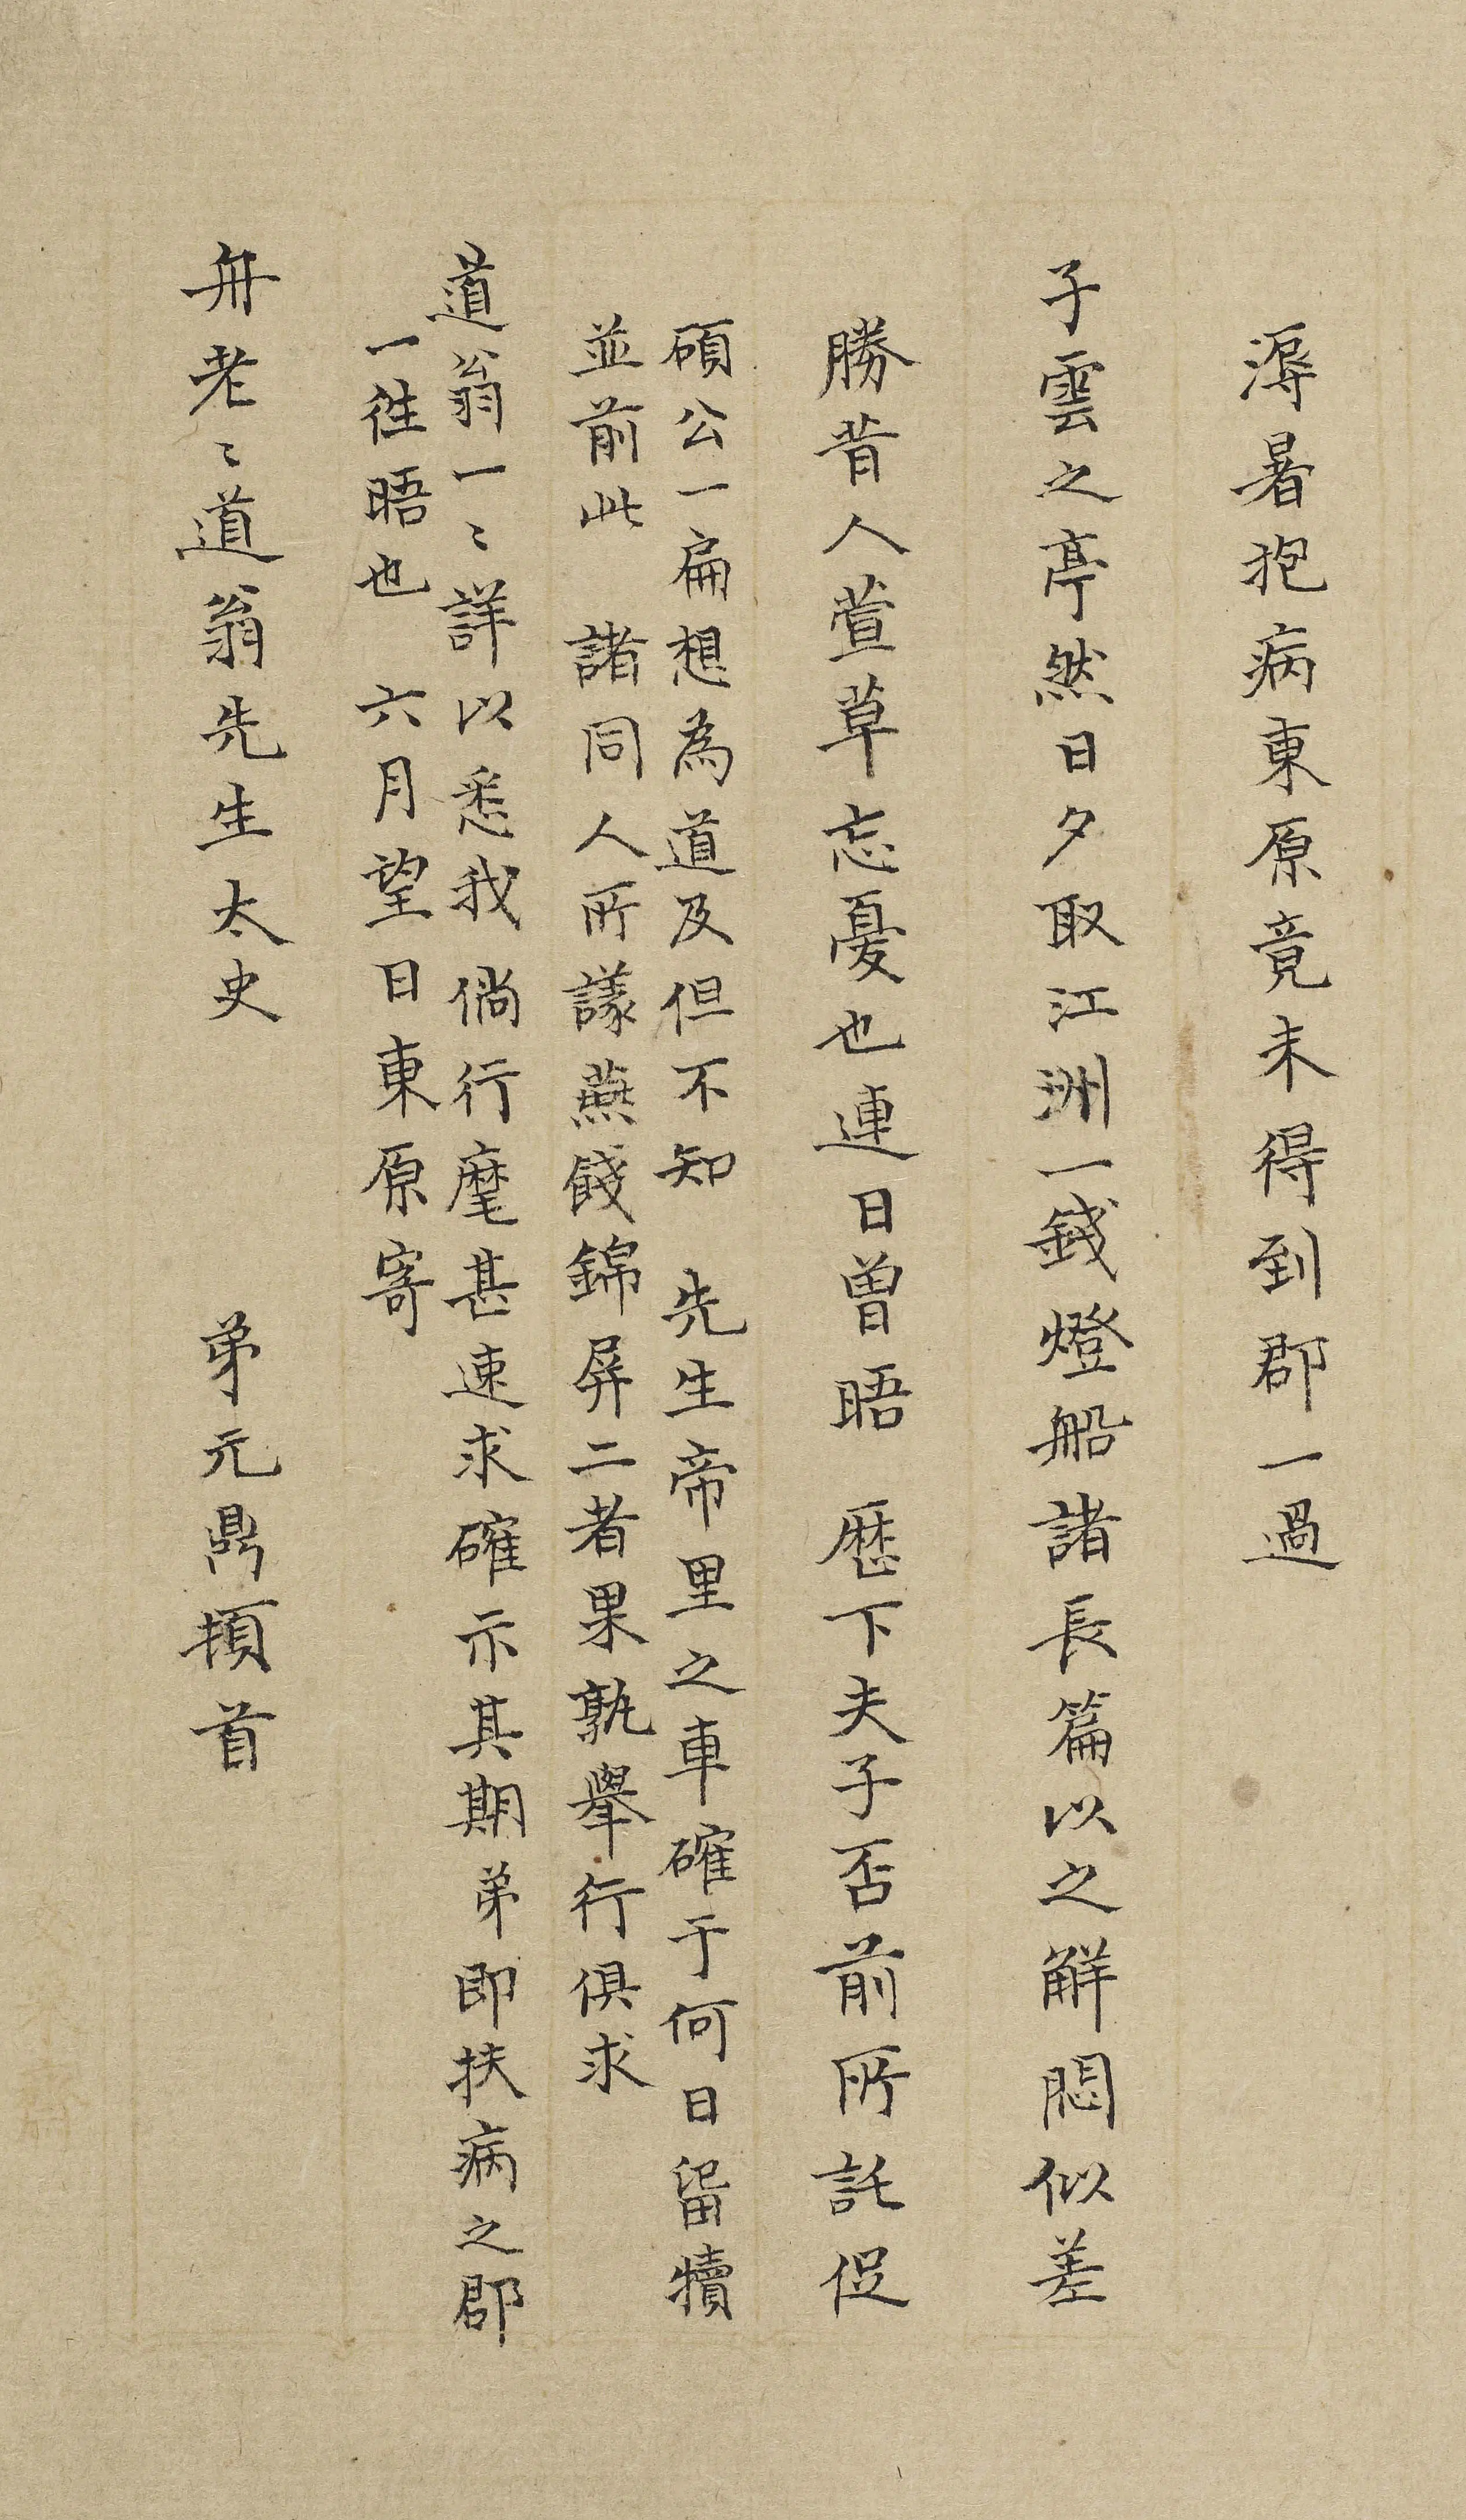 溽暑抱病東原竟未得到郡一過
子雲之亭然日夕取江洲一錢燈船諸長篇以之解悶似差
勝昔人萱草忘憂也連日曾晤 歷下夫子否前所託促
碩公一扁想為道及但不知 先生帝里之車確于何日留犢
並前此 諸同人所議燕餞錦屏二者果孰舉行俱求
道翁一〻詳以悉我倘行麾甚速求確示其期弟即扶病之郡
一往晤也 六月望日東原寄
舟老〻道翁先生太史 弟元鼎頓首